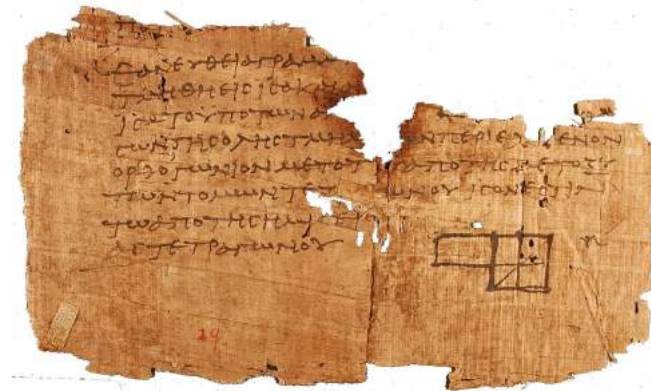 ΕΑΝΕΥΘΕΙΑΓΡΑΜΜ
ΤΜΗΘΗΕΙϹΙϹΑΚΑΙΑ
ΙϹΑΤΟΥΠΟΤΩΝΑ
ϹΩΝΤΗϹΟΛΗϹΤΜΗ ΩΝΠΕΡΙΕΧ ΜΕΝΟΝ
ΟΡΘΟΓΩΝΙΟΝΜΕΤΑΤΟΥΑΠΟΤΗϹΜΕΤΟΞΥ
ΤΩΝΤΟΜΩΝΤΕΤ ΩΝΟΥΙϹΟΝΕϹΤΙΝ
ΤΩΑΠΟΤΗϹΗΜΙϹΕΙ
ΑϹΤΕΤΡΑΓΩΝΟΥ
29